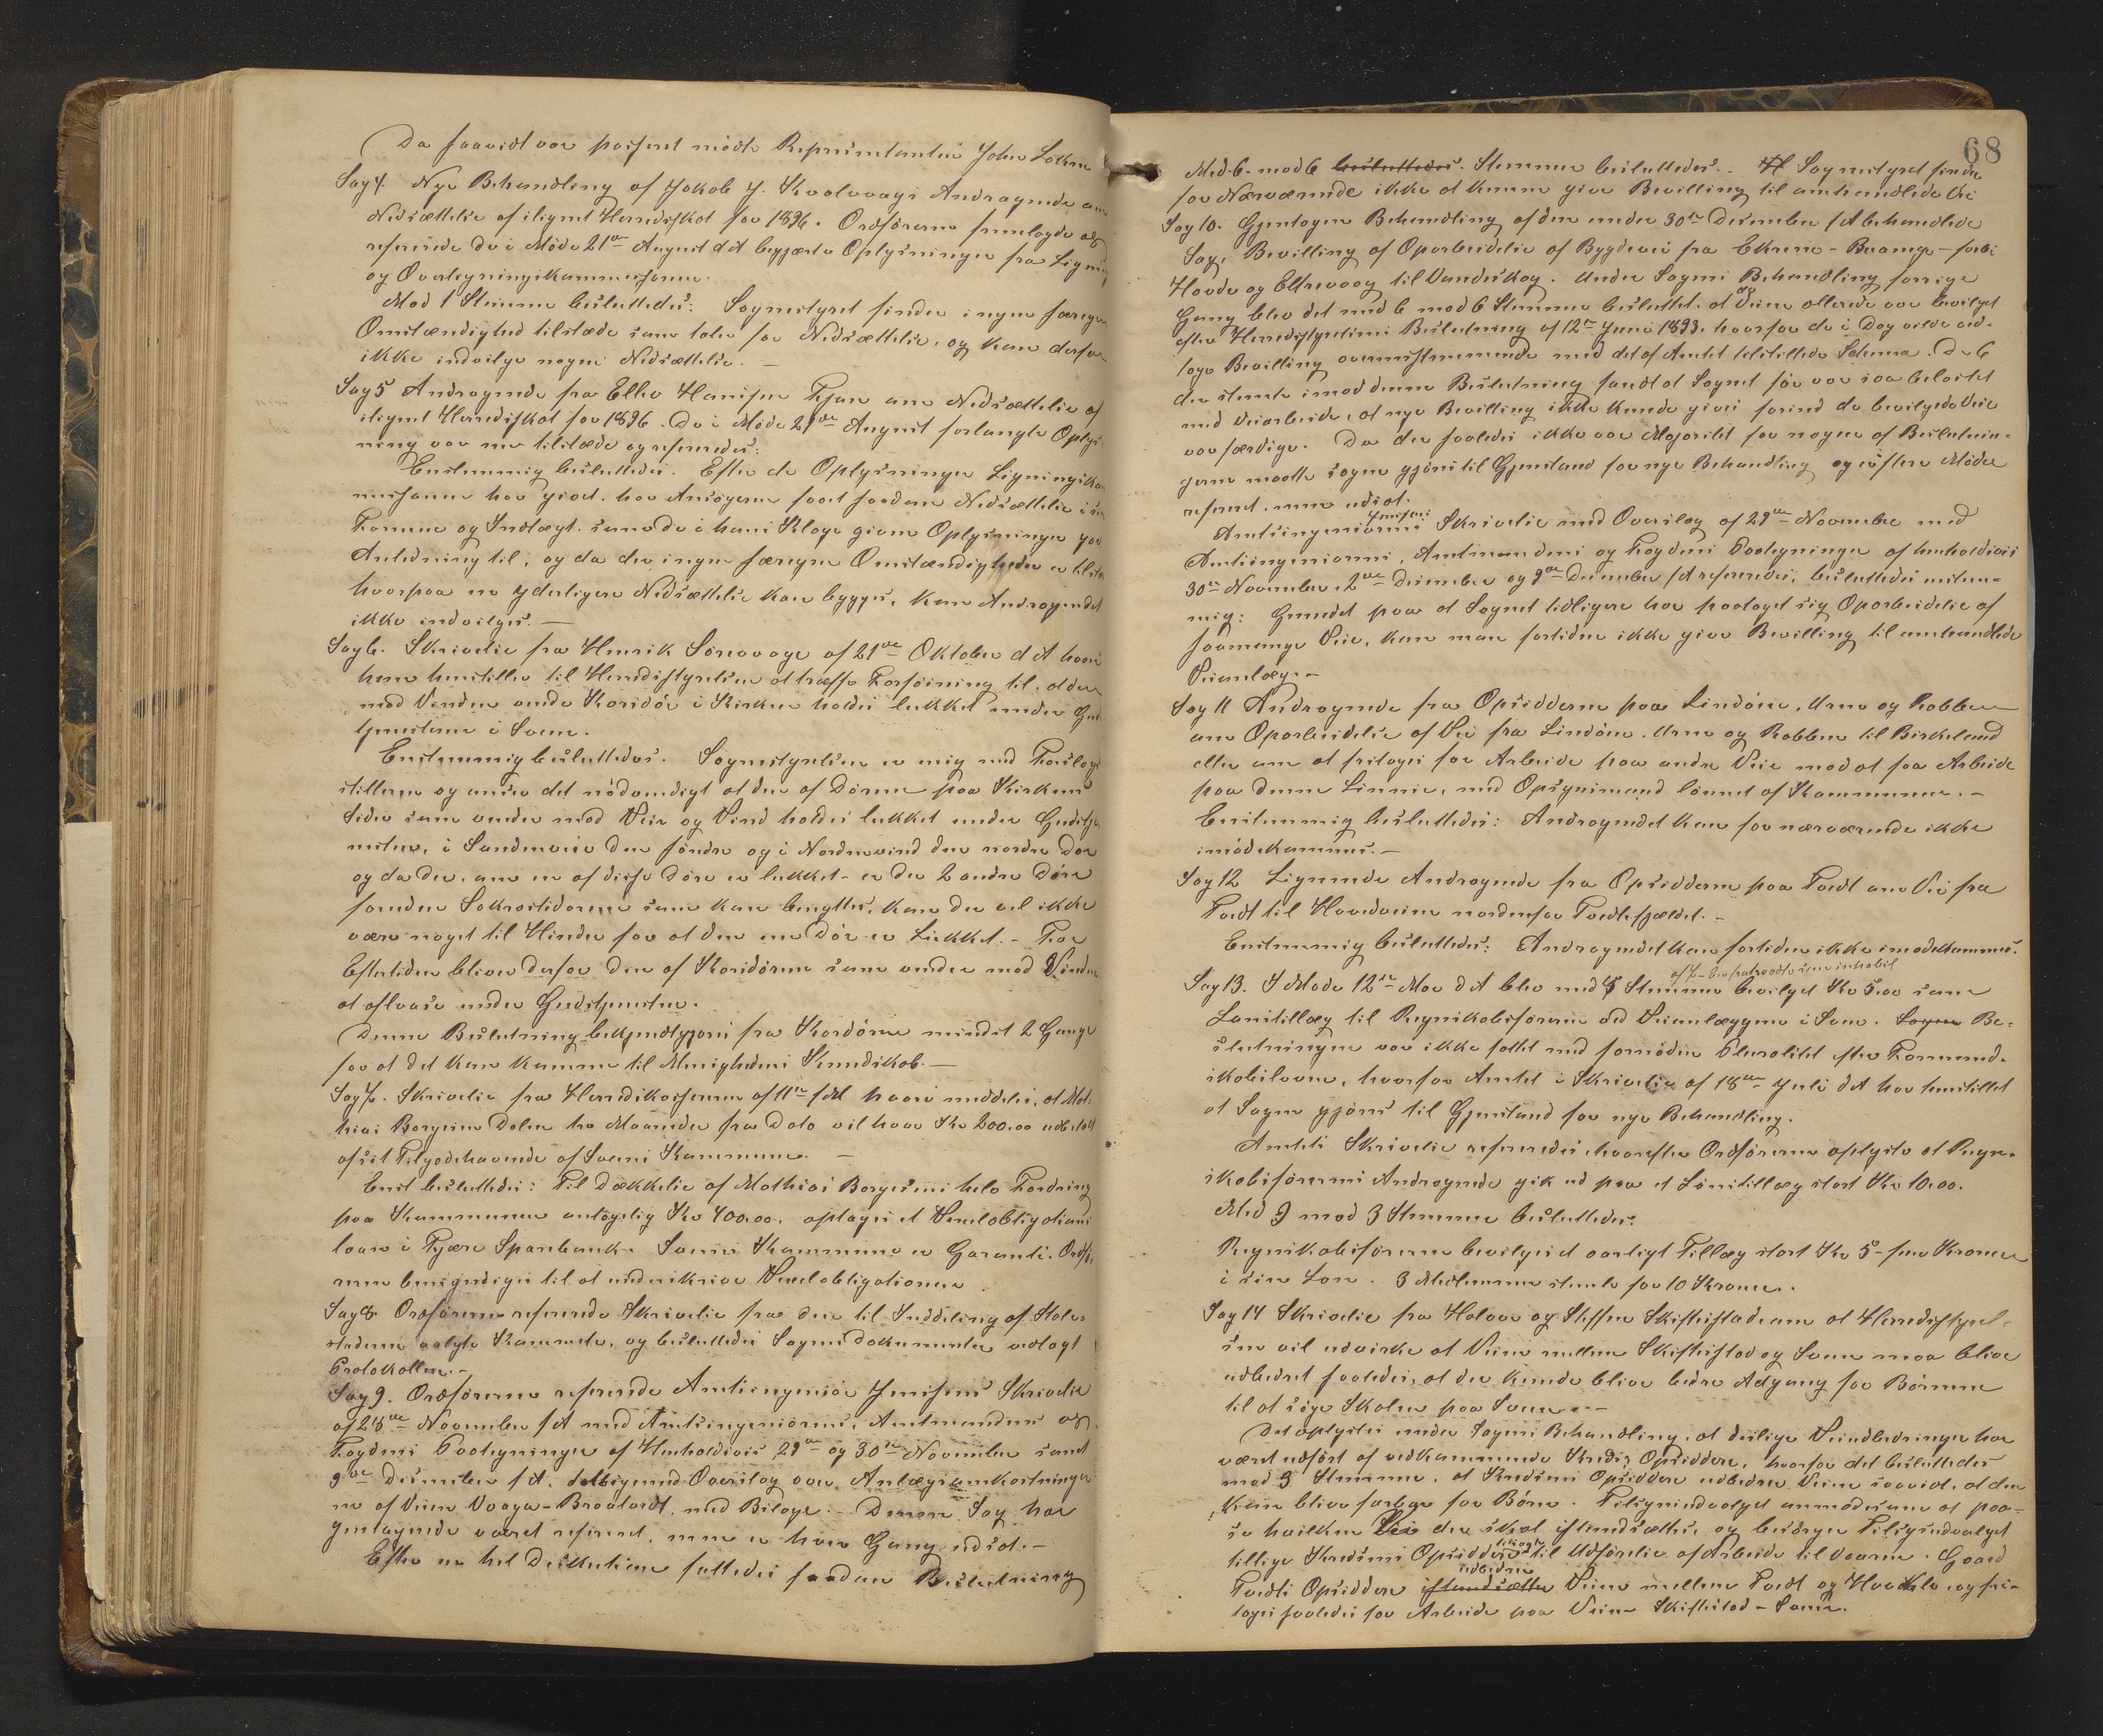 Da saavidt var passeret mødte Repræsentanten John Lothe
Sag 4. Nye Behandling af Jakob J. Kvalvaags Andragende om
Nedsættelse af ilignet Herredsskat for 1896. Ordføreren fremlagde og
refererede de i Møde 21de August d A begjærte Oplysninger fra Lignings
og Overligningskommissionen.
Mod 1 Stemme besluttedes: Sognestyret finder ingen særegen
Omstændighed tilstæde som taler for Nedsættelse, og kan derfor
ikke indvilge nogen Nedsættelse. —
Sag 5 Andragende fra Ellev Hansen om Nedsættelse af
ilignet Herredsskat for 1896. De i Møde 21de August forlangte Oplys-
ning var nu tilstæde og refereredes:
Enstemmig besluttedes. Efter de Oplysninger Ligningskom
missionen har givet, har Ansøgeren faaet saadan Nedsættelse i sin
Formue og Indtægt, som de i hans Klage givne Oplysninger gav
Anledning til, og da der ingen særegne Omstændigheder er tilstæde
hvorpaa en yderligere Nedsættelse kan bygges, kan Andragendet
ikke indvilges. —
Sag 6. Skrivelse fra Henrik Sørevaage af 21de Oktober d A hvori
han henstiller til Herredsstyrelsen at træffe Forføining til, at den
mod Vinden vendte Koridør i Kirken holdes lukket under Gud
tjenesterne i Sveen.
Enstemmig besluttedes. Sognestyrelsen er enig med Forslags
stilleren og anser det nødvendigt at den af Dørene paa Kirkens
Sider som vender mod Veir og Vind holdes lukket under Gudstje
nesten, i Søndenveir den søndre og i Nordenvind den nordre Dør
og da der, om en af disse Døre er lukket - er der 2 andre Døre
foruden Sakrestidøren som kan benyttes, kan der vel ikke
være noget til Hinder for at den ene Dør er Lukket. - For
Eftertiden bliver derfor den af Koridørene som vender mod Vinden
at aflaase under Gudstjenesten.
Denne Beslutning bekjendtgjøres fra Kordøren mindst 2 Gange
for at det kan komme til Menighedens Kundskab. —
Sag 7. Skrivelse fra Herredskassereren af 11te hvori meddeles, at Mat-
hias Børgesen Dalen vil have Kr 200.00 udbetalt
af sit Tilgodehavende af Sveens Kommune. —
Enst besluttedes: Til Dækkelse af Mathias Børgesens hele Fordring
paa Kommunen antagelig Kr 400.00, optages et Vexelobligations
laan i Fjære Sparebank. Sveens Kommune er Garanti. Ordfø
reren bemyndiges til at underskrive Vexelobligationen
Sag 8. Ordføreren refererede Skrivelse fra den til Inddeling af
valgte Kommite, og besluttedes Sagens Dokumenter vedlagt
Protokollen. —
Sag 9. Ordføreren refererede Amtsingeniør Jensens Skrivelse
af 28de November f A med Amtsingeniørens, Amtmandens og
Fogdens Paategninger af Henholdsvis 29de og 30te November samt
9de December f A. Overslag over Anlægsomkostninger
ne af Veien Vaage-Bra med Bilage. - Denne Sag har
gjentagende været refereret, men er hver Gang udsat. —
Efter en hel Diskution fattedes saadan Beslutning
68
Med 6 mod 6 Stemmer besluttedes. Sognestyret finder
for Nærværende ikke at kunne give Bevilling til omhandlede Vei
Sag 10. Gjentagen Behandling af den under 30te December f A behandlede
Sag, Bevilling af Oparbeidelse af Bygdevei fra Ekrene - Buange - forbi
Hovde og Eltravaag til Vandaskog. Under Sagens Behandling forrige
Gang blev det med 6 mod 6 Stemmer besluttet, at da Veien allerede var bevilget
efter Herredsstyrelsens Beslutning af 12te Juni 1893, hvorfor de i Dag vilde ved-
tage Bevilling overensstemmende med det af Amtet tilstillede Schema. De 6
der stemte imod denne Beslutning fandt at Sognet før var saa belastet
med Veiarbeide, at nye Bevilling ikke kunde gives førend de bevilgede Veie
var færdige. Da der saaledes ikke var Majoritet for nogen af Beslutnin-
gerne maatte sagen gjøres til Gjenstand for nye Behandling og i flere Møder
refereret, men udsat.
Amtsingeniørens Jensens Skrivelse med Overslag af 29de November med
Amtsingeniørens, Amtmandens og Fogdens Paategninger af henholdsvis
30te November, 2den December og 9de December f A refereredes, besluttedes enstem-
mig: Grundet paa at Sognet tidligere har paataget sig Oparbeidelse af
saamange Veie, kan man fortiden ikke give Bevilling til omhandlede
Veianlæg. —
Sag 11 Andragende fra Opsidderne paa Lindøen, Urne og Kobben
om Oparbeidelse af Vei fra Lindøen, Urne og Kobben til Birkeland
eller om at fritages for Arbeide paa andre Veie mod at faa Arbeide
paa denne Linnie, med Opsynsmand lønnet af Kommunen. —
Enstemmig besluttedes: Andragendet kan for nærværende ikke
imødekommes. —
Sag 12 Lignende Andragende fra Opsidderne paa Tveit om Vei fra
Tveit til Hovdveien nordenfor Tveitefjeldet. —
Enstemmig besluttedes: Andragendet kan fortiden ikke imødekommes.
Sag 13. I Møde 12te Mai d A blev med 5 Stemmer bevilget Kr 5.00 som
Lønstillæg til Regnskabsføreren ved Veianlæggene i Sveen. Be-
slutningen var ikke fattet med fornøden Pluralitet efter Formand-
skabsloven, hvorfor Amtet i Skrivelse af 18de Juli d A har henstillet
at Sagen gjøres til Gjenstand for nye Behandling.
Amtets Skrivelse refereredes, hvorefter Ordføreren oplyste at Regn-
skabsførerens Andragende gik ud paa et Lønstillæg stort Kr 10.00.
Med 9 mod 3 Stemmer besluttedes:
Regnskabsføreren bevilges et aarligt Tillæg stort Kr 5 - fem Kroner
i sin Løn. 3 Medlemmer stemte for 10 Kroner.
Sag 14 Skrivelse fra Halvor og Steffen Skiftestad om at Herredsstyrel-
sen vil udvirke at Veien mellem Skiftestad og Sveen maa blive
udbedret saaledes, at der kunde blive bedre Adgang for Børnene
til at søge Skolen paa Sveen. —
Det oplystes under Sagens Behandling, at deslige Veiudbedringer har
været udført af vedkommende Kredses Opsiddere, hvorfor det besluttedes
mod 3 Stemmer, at Kredsens Opsiddere udbedrer Veien saavidt, at den
kan blive farbar for Børn. Tilsynsudvalget anmodes om at paa-
se hvilken Vei der skal istandsættes og besørger Tilsynsudvalget
tillige Kredsens Opsiddere tilsagte til Udførelse af Arbeide til Vaaren. Gaard
Tveits Opsiddere udbedrer Veien mellem Tveit og Hovde og fri-
tages saaledes for Arbeide paa Veien Skiftestad - Sveen.